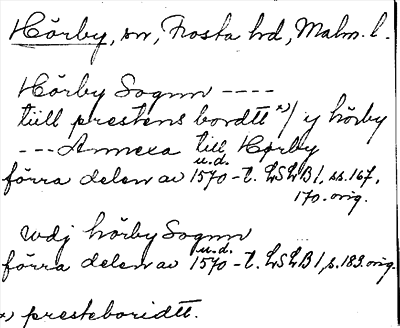 Hörby, sn, Frosta hd, Malm. l.
Hörby Sognn ----
tiill prestens bordtt x)/ y hörby
--- Annexa till Hørby
förra delen av u.d. 1570-t. LSLB 1, ss. 167,
170. orig.
wdj hörby Sognn
förra delen av u.d. 1570-t. LSLB 1, s. 183. orig.
x) presteboridtt.